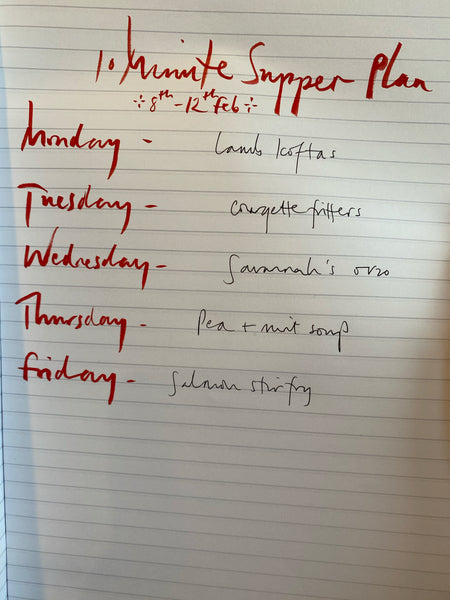 10 Minute Supper Plan
8th - 12th Feb
Monday - Lamb Koftas
Tuesday - Courgette fritters
Wednesday - Savannah's orzo
Thursday - Pea + mint soup
Friday - Salmon stir fry